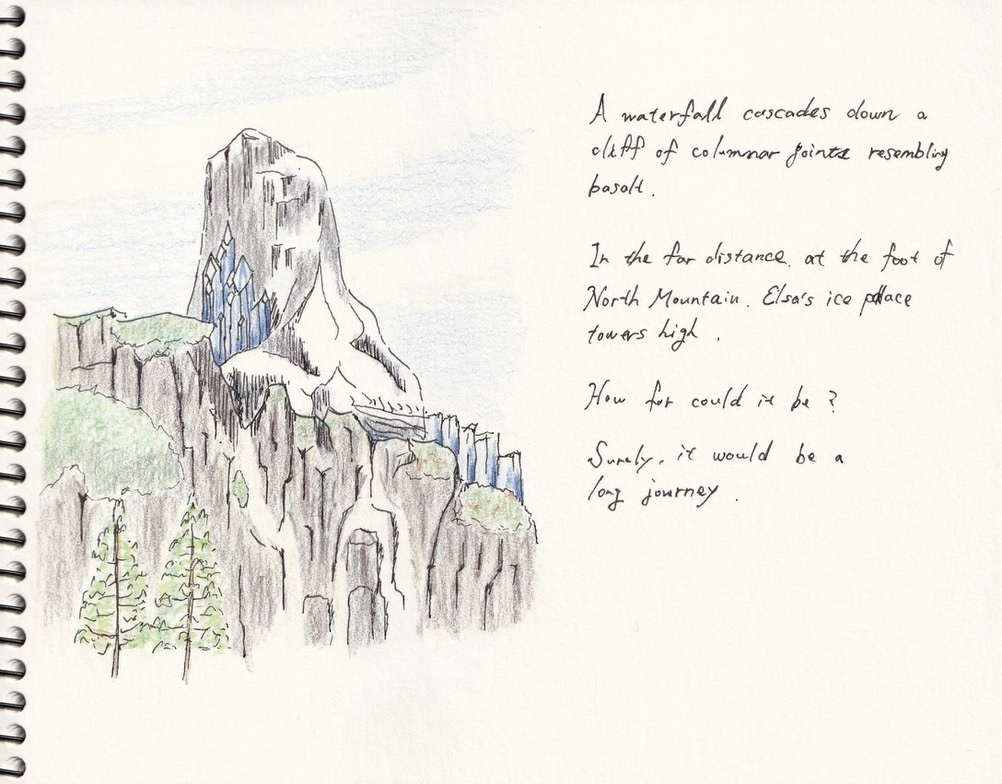 A waterfall cascades down a
cliff of columnar joints resembling
basalt.
In the far distance, at the foot of
North Mountain, Elsa's ice palace
towers high.
How far could it be?
Surely, it would be a
long journey.